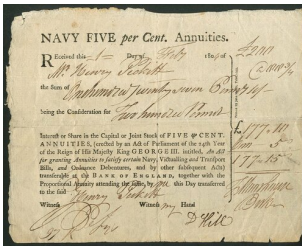 NAVY FIVE per Cent. Annuities.
RECEIVED this Day of 180
£200
Mr Henry
the Sum of One hundred Seventy Seven Pounds
being the Consideration for Two hundred Pounds
Interest or Share in the Capital or Joint Stock of FIVE ⅌ CENT.
ANNUITIES, erected by an Act of Parliament of the 24th Year
of the Reign of His Majesty King GEORGE III. intitled, An Act
for granting Annuities to satisfy certain Navy, Victualling and Transport
Bills, and Ordnance Debentures, and by other subsequent Acts;
transferable at the BANK OF ENGLAND, together with the
Proportional Annuity attending the same, by me this Day transferred
to the said Henry
£ 177-10
5
177-15
Witness my Hand
Witness